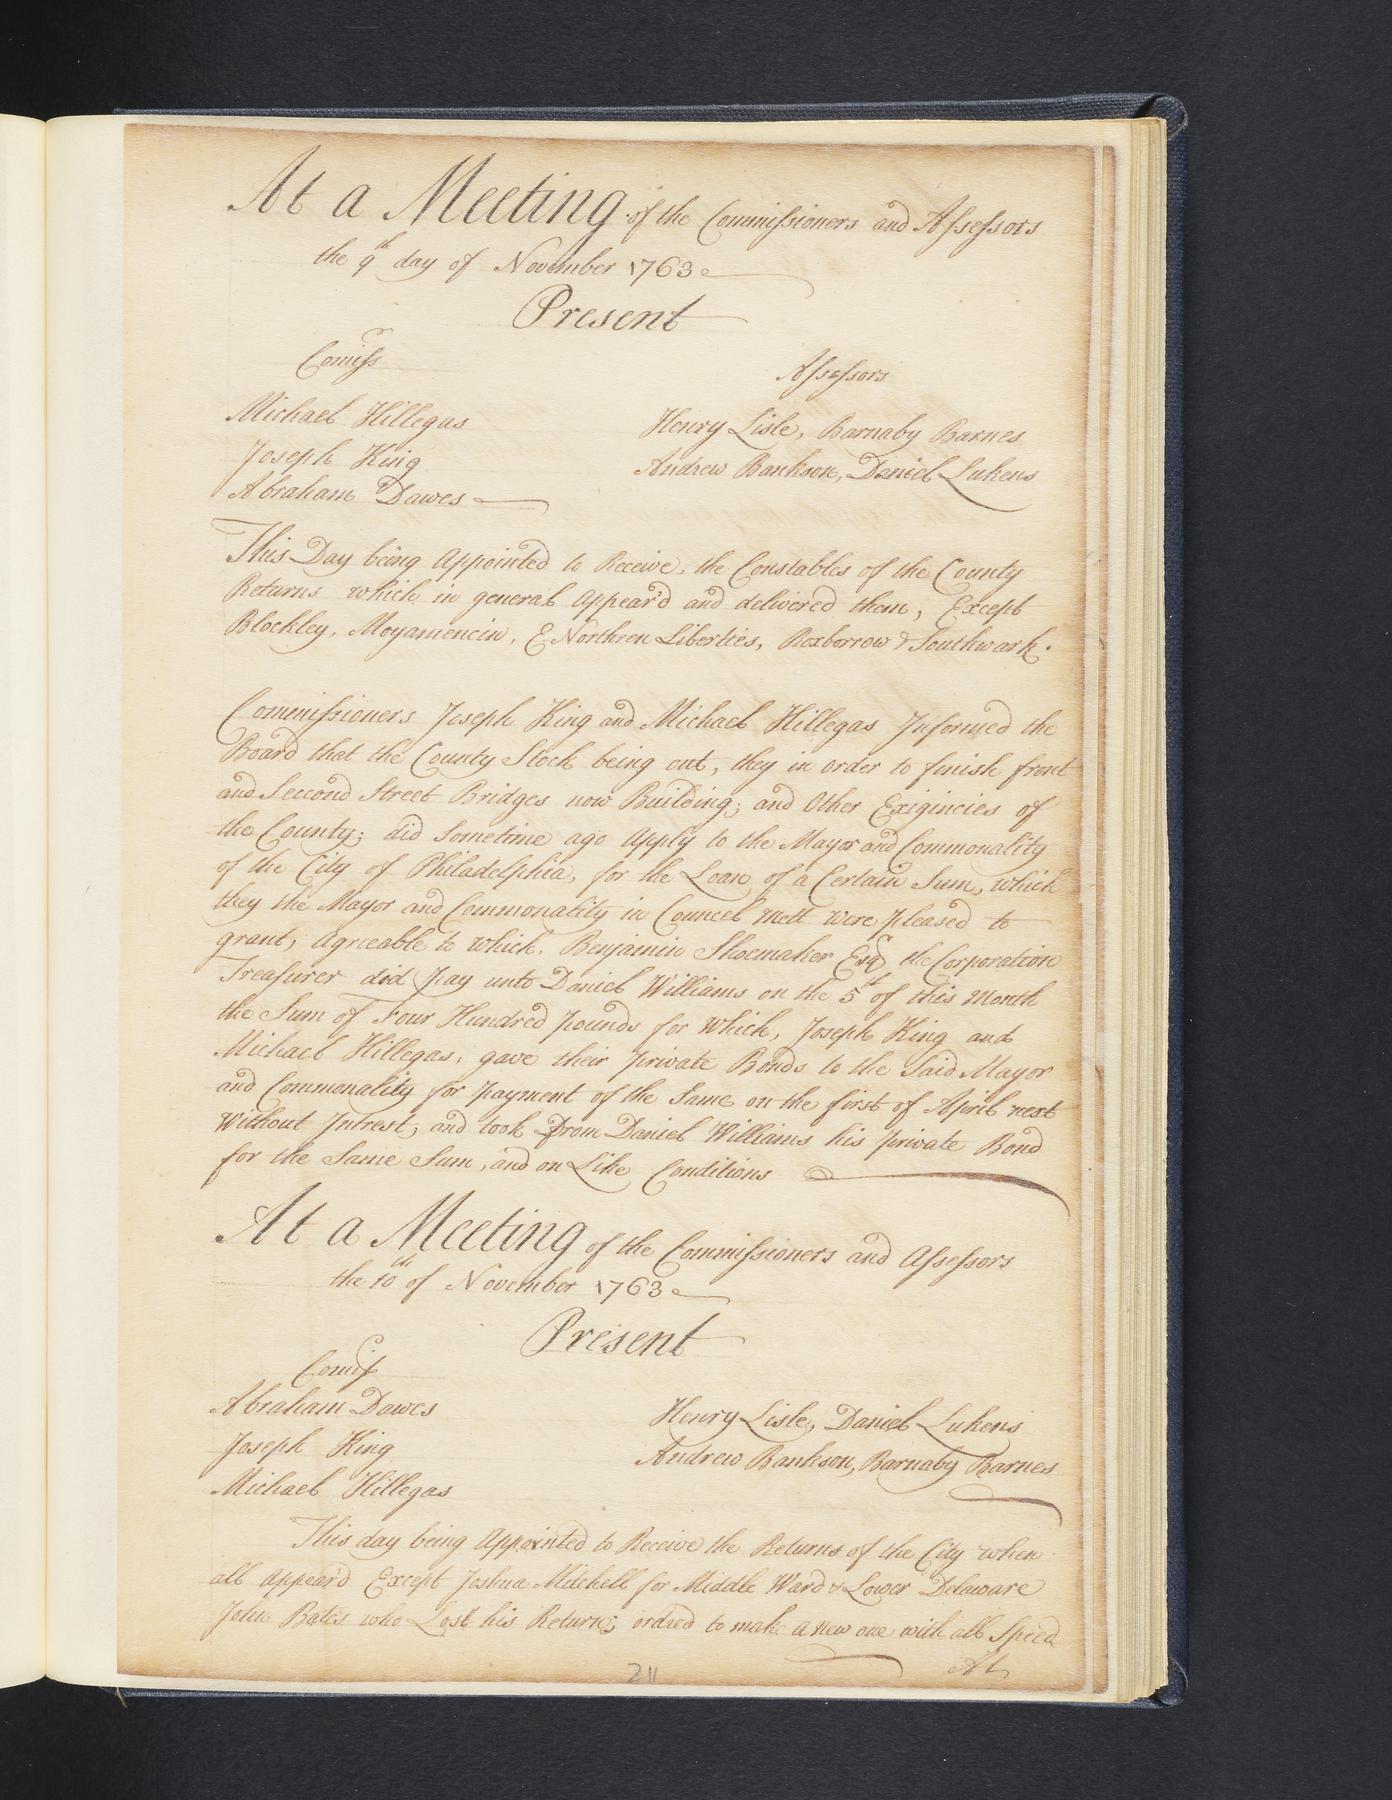 At a Meeting of the Commissioners and Assessors
the 9th day of November 1763
Present
Comiss
Assessors
Michael Hillegas
Henry Lisle, Barnaby Barnes
Joseph King
Andrew Bankson, Daniel Lukens
Abraham Dawes
This Day being Appointed to Receive, the Constables of the County
Returns which in general Appear'd and delivered them, Except
Blockley, Moyamencin, E Northren Liberties, Roxborrow & Southwark.
Commissioners Joseph King and Michael Hillegas Informed the
Board that the County Stock being out, they in order to finish front
and Second Street Bridges now Building; and Other Exigincies of
the County; did Sometime ago Apply to the Mayor and Commonality
of the City of Philadelphia, for the Loan of a Certain Sum, which
they the Mayor and Commonality in Councel mett were pleased to
grant, Agreeable to which, Benjamin Shoemaker Esqr the Corporation
Treasurer did pay unto Daniel Williams on the 5th of this Month
the Sum of Four Hundred pounds for which, Joseph King and
Michael Hillegas, gave their private Bonds to the Said Mayor
and Commonality for payment of the Same on the first of April next
Without Intrest, and took From Daniel Williams his private Bond
for the Same Sum, and on Like Conditions
At a Meeting of the Commissioners and Assessors
the 10th of November 1763
Present
Comiss
Abraham Dawes
Henry Lisle, Daniel Lukens
Joseph King
Andrew Bankson, Barnaby Barnes
Michael Hillegas
This day being Appointed to Receive the Returns of the City when
all Appear'd Except Joshua Mitchell for Middle Ward & Lower Delaware
John Bates who Lost his Return; ordred to make a new one with all Speed
At
211